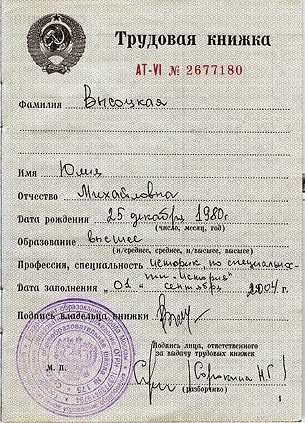 Трудовая книжка
АТ-VI № 2677180
Фамилия Высоцкая
Имя Юлия
Отчество Михайловна
Дата рождения 25 декабря 1980г
(число, месяц, год)
Образование высшее
(н/среднее, среднее, н/высшее, высшее)
Профессия, специальность историк по специальнос-
ти "история"
Дата заполнения "01" сентября 2004 г.
Подпись владельца книжки
Подпись лица, ответственного
за выдачу трудовых книжек
М. П.
(Сорокина Н.Г.)
(разборчиво)
1